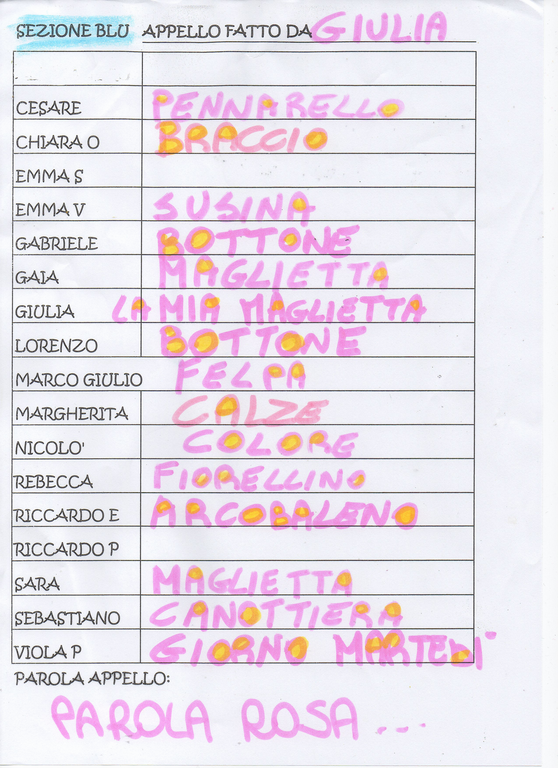 SEZIONE BLU APPELLO FATTO DA GIULIA
CESARE PENNARELLO
CHIARA O BRACCIO
EMMA S
EMMA V SUSINA
GABRIELE BOTTONE
GAIA MAGLIETTA
GIULIA LA MIA MAGLIETTA
LORENZO BOTTONE
MARCO GIULIO FELPA
MARGHERITA CALZE
NICOLO' COLORE
REBECCA FIORELLINO
RICCARDO E ARCOBALENO
RICCARDO P
SARA MAGLIETTA
SEBASTIANO CANOTTIERA
VIOLA P GIORNO MARTEDI'
PAROLA APPELLO:
PAROLA ROSA...